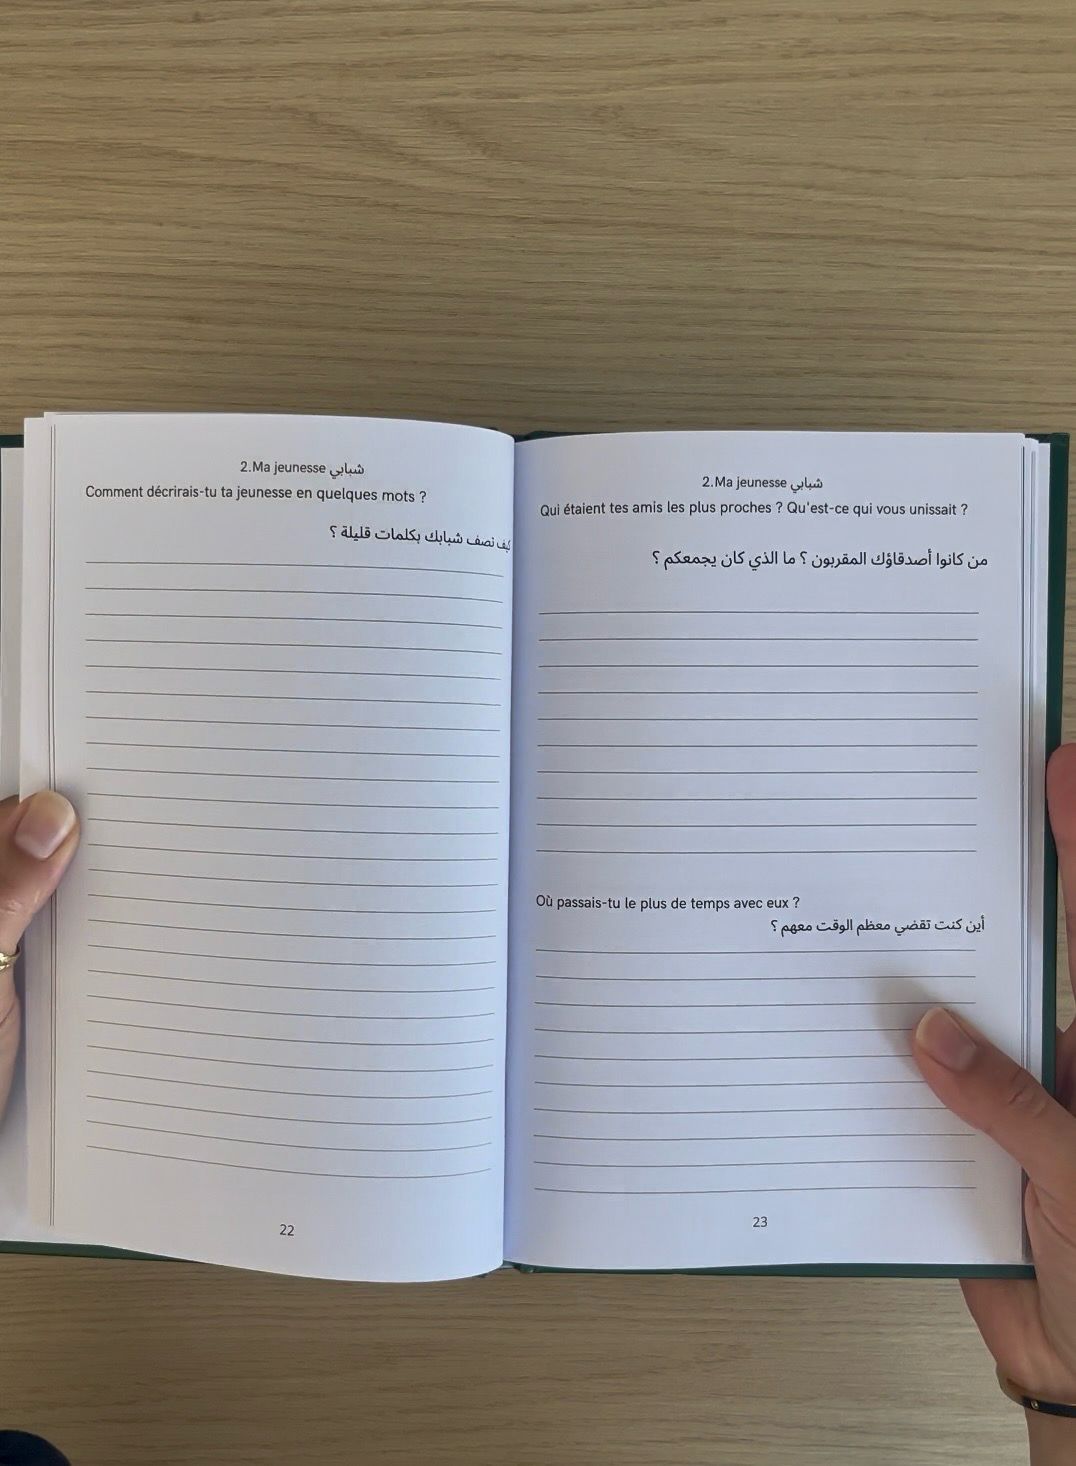 2.Ma jeunesse شبابي
Comment décrirais-tu ta jeunesse en quelques mots ?
كيف نصف شبابك بكلمات قليلة ؟
22
2.Ma jeunesse شبابي
Qui étaient tes amis les plus proches ? Qu'est-ce qui vous unissait ?
من كانوا أصدقاؤك المقربون ؟ ما الذي كان يجمعكم ؟
Où passais-tu le plus de temps avec eux ?
أين كنت تقضي معظم الوقت معهم ؟
23